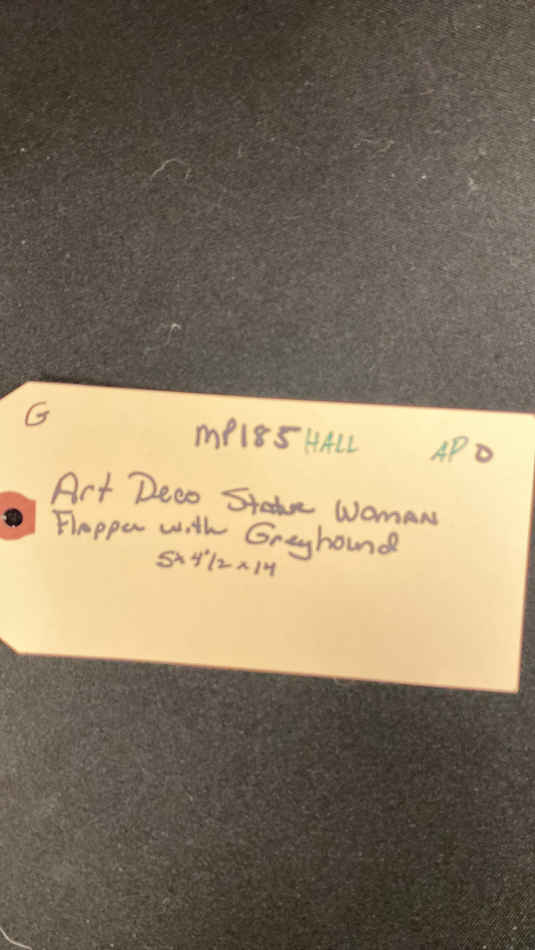 G
MP185 HALL AP D
Art Deco Statue WOMAN
Flapper with Greyhound
5x 4 1/2 x 14